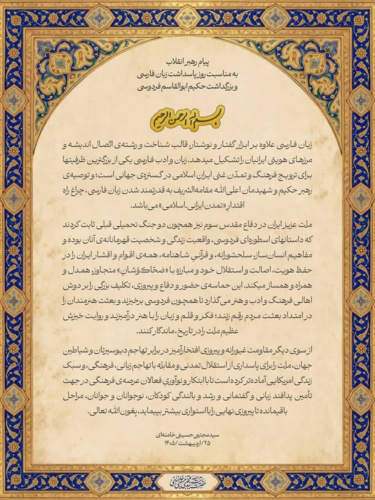 پیام رهبر انقلاب
به مناسبت روز پاسداشت زبان فارسی
و بزرگداشت حکیم ابوالقاسم فردوسی
بسم الله الرحمن الرحیم
زبان فارسی علاوه بر ابزار گفتار و نوشتار، قالب شناخت و رشته‌ی اتصال اندیشه و
مرزهای هویتی ایرانیان را تشکیل میدهد. زبان و ادب فارسی یکی از بزرگترین ظرفیتها
برای ترویج فرهنگ و تمدّن غنی ایران اسلامی در گستره‌ی جهانی است؛ و توصیه‌ی
رهبر حکیم و شهیدمان اعلی الله مقامه‌الشریف به قدرتمند شدن زبان فارسی، چراغ راه
اقتدارِ «تمدن ایرانی_اسلامی» می‌باشد.
ملت عزیز ایران در دفاع مقدس سوم نیز همچون دو جنگ تحمیلی قبلی ثابت کردند
که داستانهای اسطوره‌ای فردوسی، واقعیت زندگی و شخصیت قهرمانانه‌ی آنان بوده و
مفاهیم انسان‌ساز، سلحشورانه، و قرآنیِ شاهنامه، همه‌ی اقوام و اقشار ایران را در
حفظ هویت، اصالت و استقلال خود و مبارزه با «ضحّاک‌وَشانِ» متجاوز، همدل و
همراه و همساز میکند. این حماسه‌ی حضور و دفاع و پیروزی، تکلیف بزرگی را بر دوش
اهالی فرهنگ و ادب و هنر می‌گذارد تا همچون فردوسی برخیزند و بعثت هنرمندان را
در امتداد بعثت مردم رقم زنند؛ فکر و قلم و زبان را با هنر درآمیزند و روایت خیزش
عظیم ملت را در تاریخ، ماندگار کنند.
از سوی دیگر مقاومت غیورانه و پیروزی افتخارآمیز در برابر تهاجم دیوسیرتان و شیاطین
جهان، ملت را برای پاسداری از استقلال تمدنی و مقابله با تهاجم زبانی، فرهنگی، و سبک
زندگی امریکایی آماده‌تر کرده است تا با ابتکار و نوآوری فعالان عرصه‌ی فرهنگی در جهت
تأمین پدافند زبانی و گفتمانی و رشد و بالندگی کودکان، نوجوانان و جوانان، مراحل
باقیمانده تا پیروزی نهایی را با استواری بیشتر بپیماید، بِعَون الله تعالی.
سیدمجتبی حسینی خامنه‌ای
۲۵/اردیبهشت/۱۴۰۵